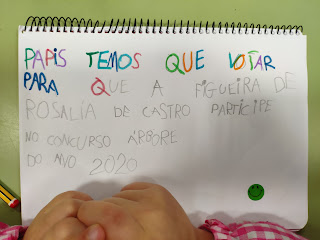 PAPIS TEMOS QUE VOTAR
PARA QUE A FIGUEIRA DE
ROSALÍA DE CASTRO PARTICIPE
NO CONCURSO ÁRBORE
DO ANO 2020